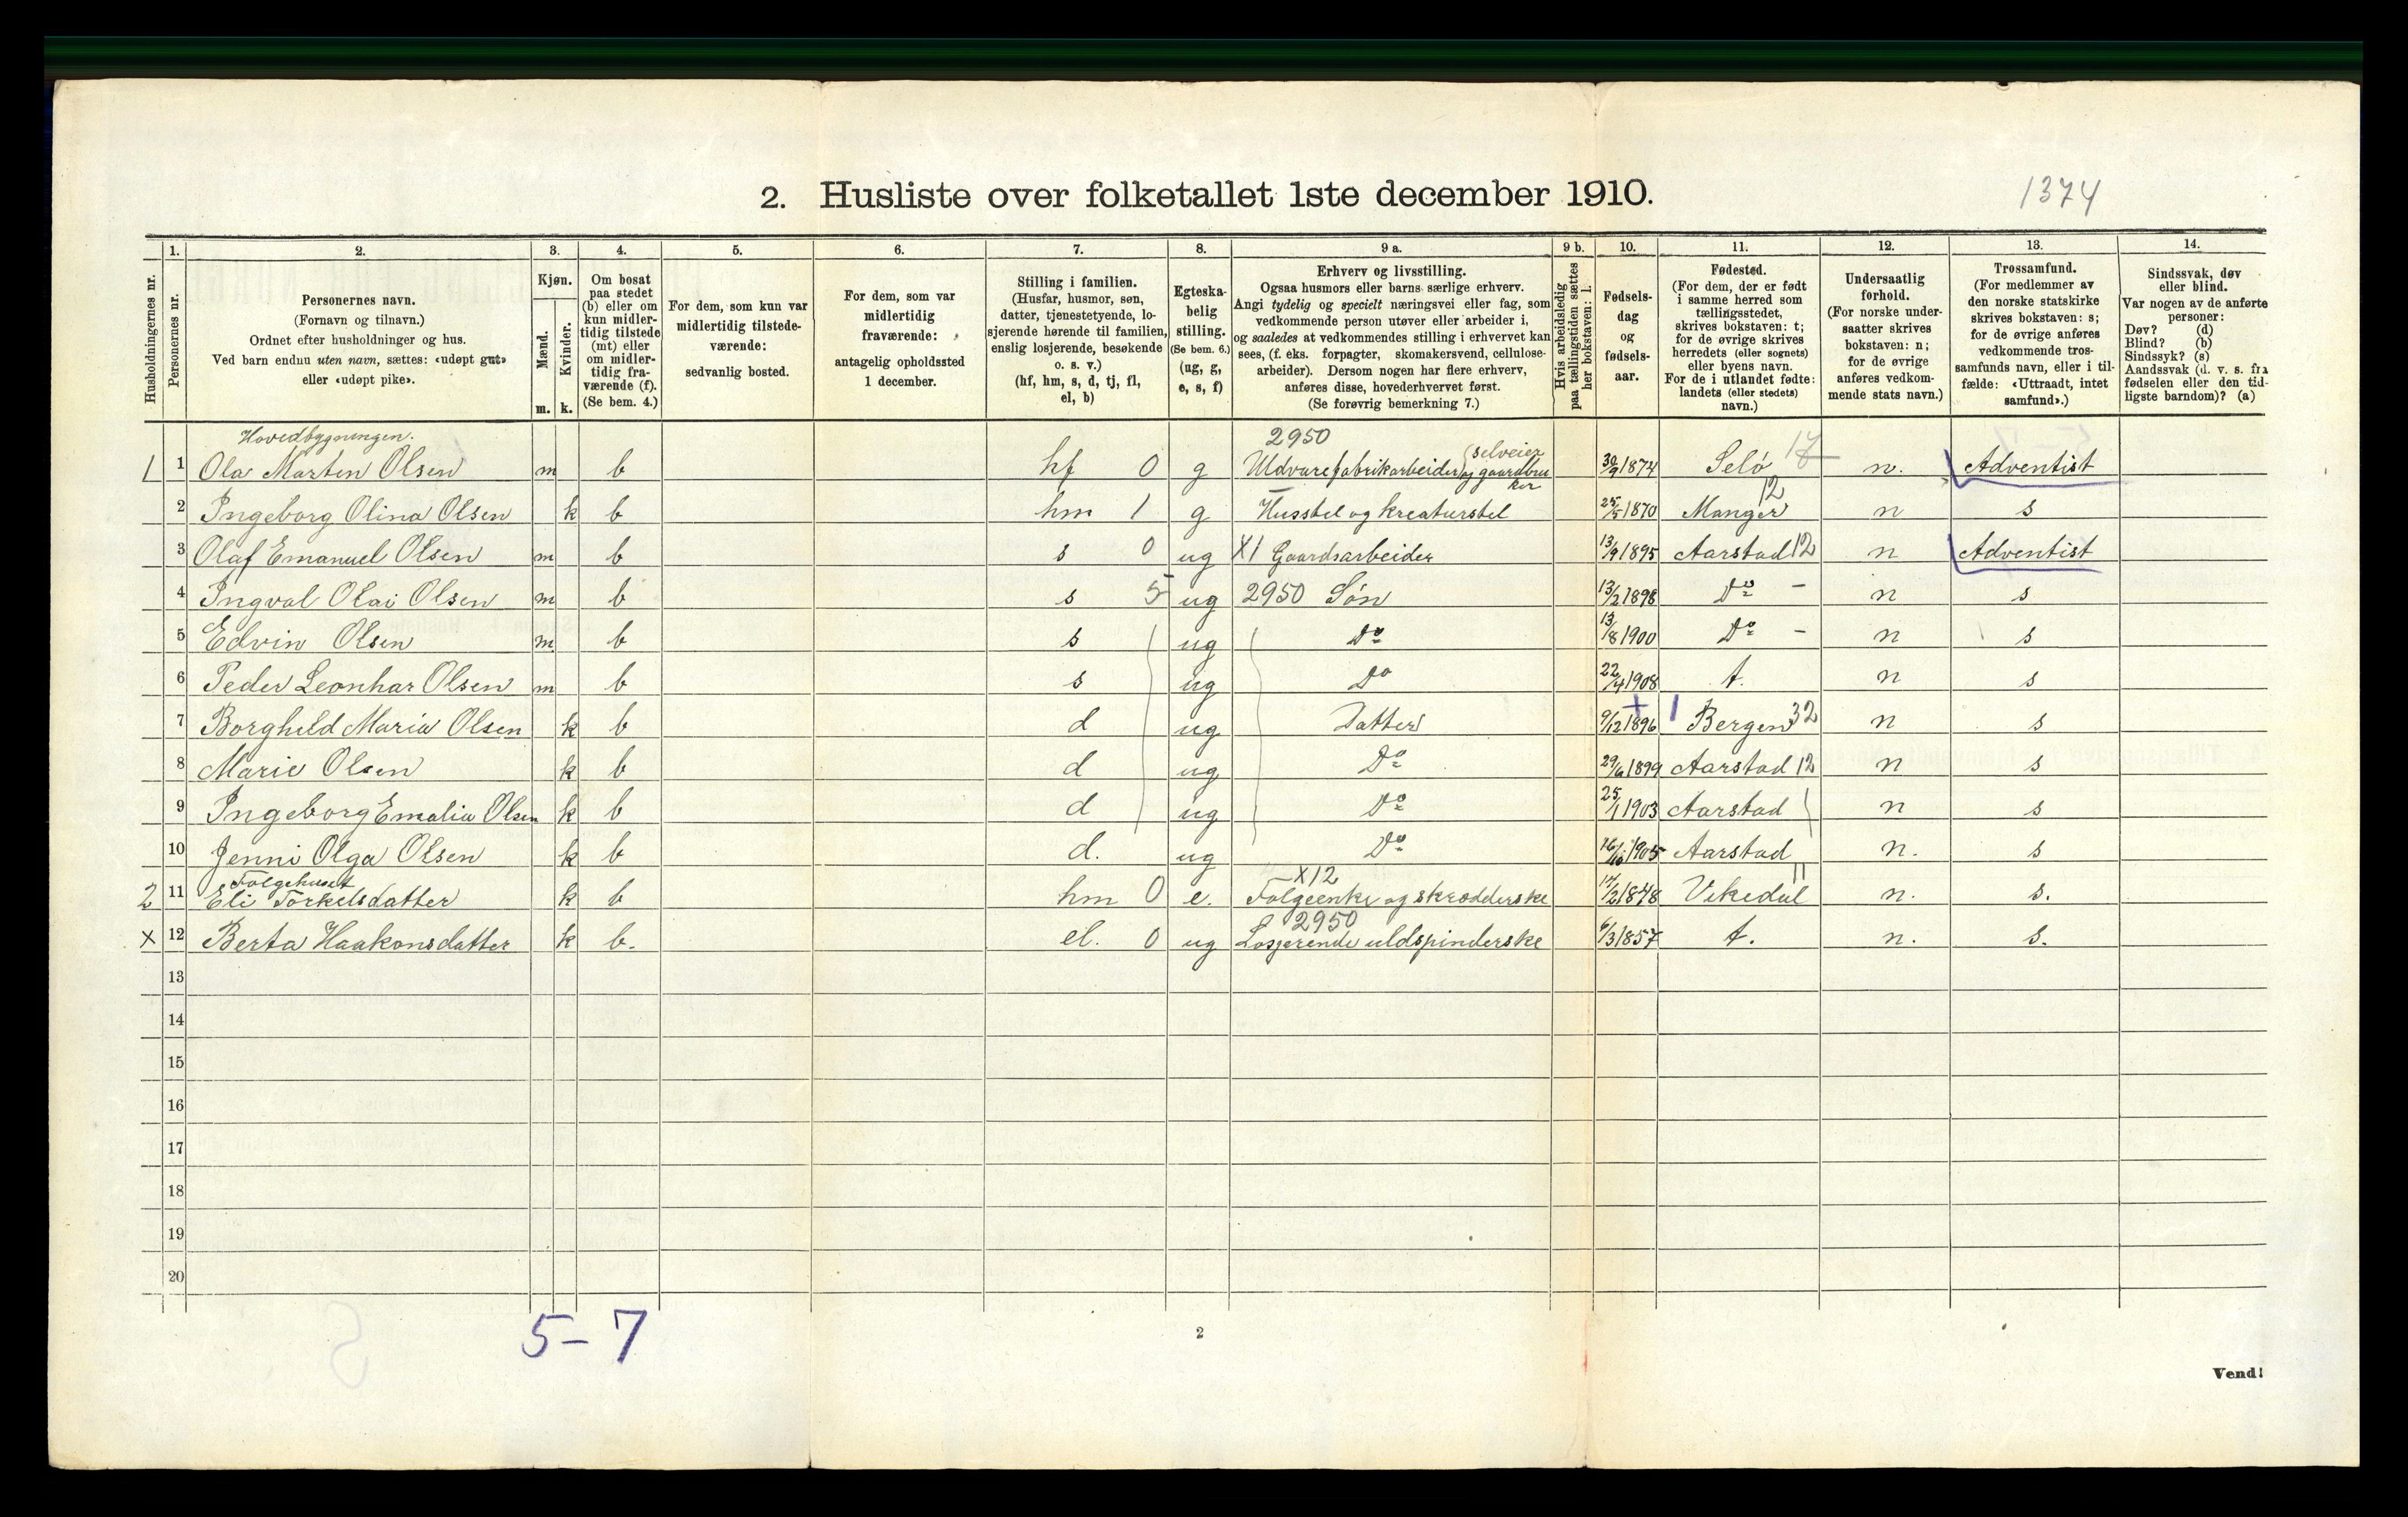 2. Husliste over folketallet 1ste december 1910.
1374
Husholdningernes nr.
1.
Personernes nr.
2.
Personernes navn.
(Fornavn og tilnavn.)
Ordnet efter husholdninger og hus.
Ved barn endnu uten navn, sættes: «udøpt gut»
eller «udøpt pike».
3.
Kjøn.
Mænd.
Kvinder.
m. k.
4.
Om bosat
paa stedet
(b) eller om
kun midler-
tidig tilstede
(mt) eller
om midler-
tidig fra-
værende (f).
(Se bem. 4.)
5.
For dem, som kun var
midlertidig tilstede-
værende:
sedvanlig bosted.
6.
For dem, som var
midlertidig
fraværende:
antagelig opholdssted
1 december.
7.
Stilling i familien.
(Husfar, husmor, søn,
datter, tjenestetyende, lo-
sjerende hørende til familien,
enslig losjerende, besøkende
o. s. v.)
(hf, hm, s, d, tj, fl,
el, b)
8.
Egteska-
belig
stilling.
(Se bem. 6.)
(ug, g,
e, s, f)
9 a.
Erhverv og livsstilling.
Ogsaa husmors eller barns særlige erhverv.
Angi tydelig og specielt næringsvei eller fag, som
vedkommende person utøver eller arbeider i,
og saaledes at vedkommendes stilling i erhvervet kan
sees, (f. eks. forpagter, skomakersvend, cellulose-
arbeider). Dersom nogen har flere erhverv,
anføres disse, hovederhvervet først.
(Se forøvrig bemerkning 7.)
9 b.
Hvis arbeidsledig
paa tællingstiden sættes
her bokstaven: l.
10.
Fødsels-
dag
og
fødsels-
aar.
11.
Fødested.
(For dem, der er født
i samme herred som
tællingsstedet,
skrives bokstaven: t;
for de øvrige skrives
herredets (eller sognets)
eller byens navn.
For de i utlandet fødte:
landets (eller stedets)
navn.)
12.
Undersaatlig
forhold.
(For norske under-
saatter skrives
bokstaven: n;
for de øvrige
anføres vedkom-
mende stats navn.)
13.
Trossamfund.
(For medlemmer av
den norske statskirke
skrives bokstaven: s;
for de øvrige anføres
vedkommende tros-
samfunds navn, eller i til-
fælde: «Uttraadt, intet
samfund».)
14.
Sindssvak, døv
eller blind.
Var nogen av de anførte
personer:
Døv? (d)
Blind? (b)
Sindssyk? (s)
Aandssvak (d. v. s. fra
fødselen eller den tid-
ligste barndom)? (a)
Hovedbygningen. 2950 selveier
1 1 Ola Marten Olsen m b hf 0 g Uldvarefabrikarbeider og gaardbru 30/9 1874 Selø 17 n. Adventist
ker
2 Ingeborg Olina Olsen k b hm 1 g Husstel og kreaturstel 25/5 1870 Manger 12 n s
3 Olaf Emanuel Olsen m b s 0 ug X1 Gaardsarbeider 13/9 1895 Aarstad 12 n Adventist
4 Ingval Olai Olsen m b s 5 ug 2950 Søn 13/2 1898 Do - n s
5 Edvin Olsen m b s ug Do 13/8 1900 Do - n s
6 Peder Leonhar Olsen m b s ug Do 22/4 1908 t. n s
7 Borghild Maria Olsen k b d ug Datter 9/12 1896 + 1 Bergen 32 n s
8 Marie Olsen k b d ug Do 29/6 1899 Aarstad 12 n s
9 Ingeborg Emalia Olsen k b d ug Do 25/1 1903 Aarstad n s
10 Jenni Olga Olsen k b d. ug Do 16/10 1905 Aarstad n. s
Folgehuset X12 11
2 11 Eli Torkelsdatter k b hm 0 e. Folgeenke og skrædderske 14/2 1848 Vikedal n. s.
2950
x 12 Berta Haakonsdatter k b. el. 0 ug Losjerende uldspinderske 6/3 1857 t. n. s.
13
14
15
16
17
18
19
20
5-7
2
Vend!